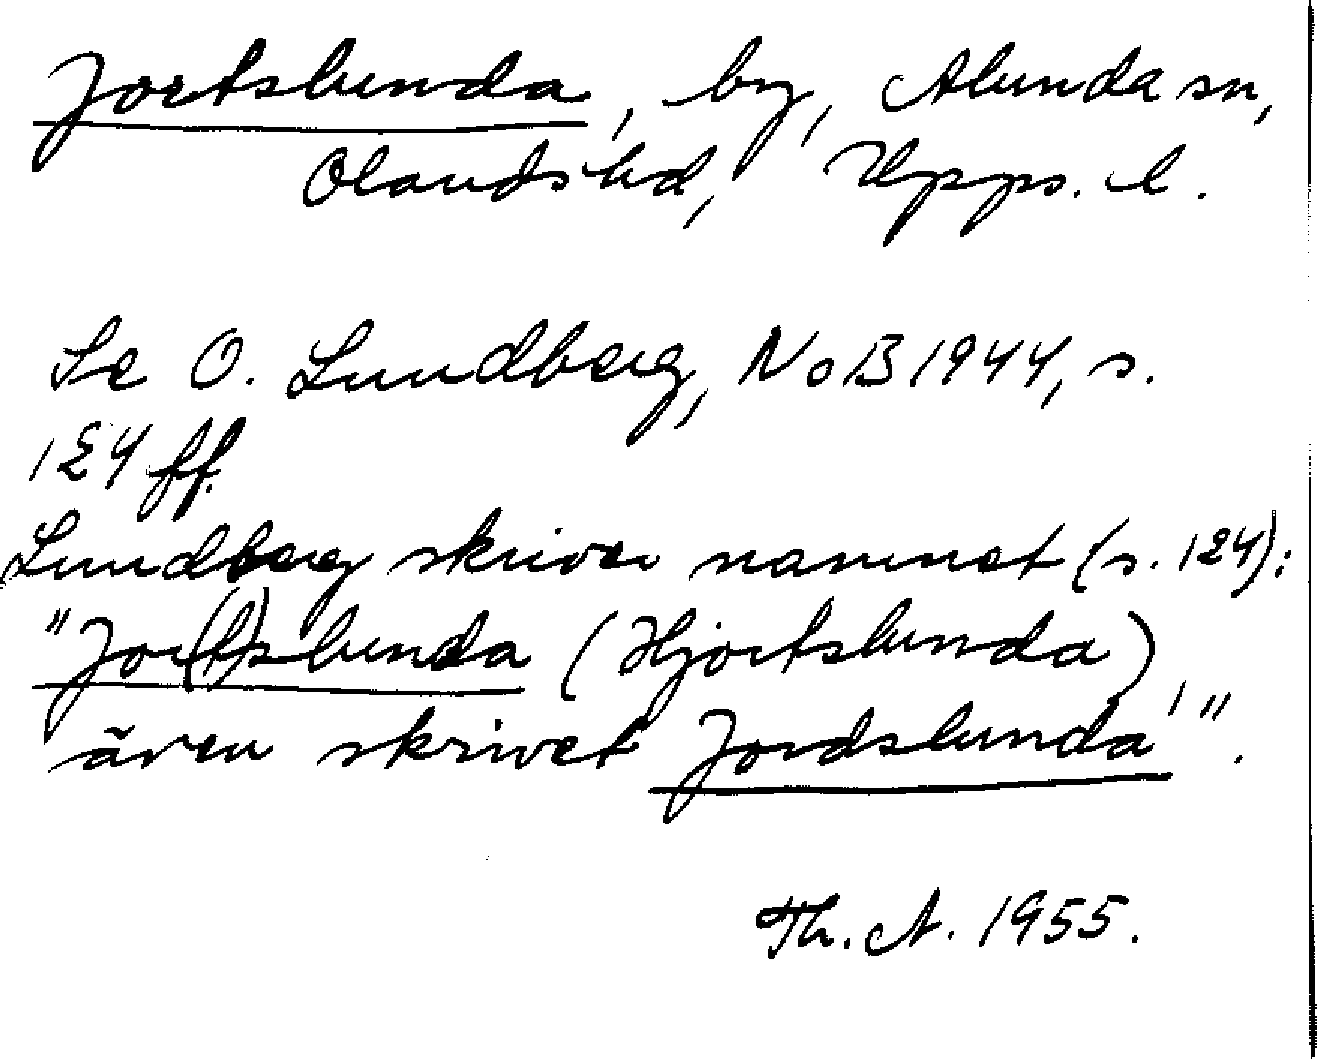 Jortslunda, by, Alunda sn,
Olands hd, Upps. l.
Se O. Lundberg, NoB 1944, s.
124 ff.
Lundberg skriver namnet (s. 124):
"Jor(t)slunda (Hjortslunda)
även skrivet Jordslunda'".
Th. A. 1955.